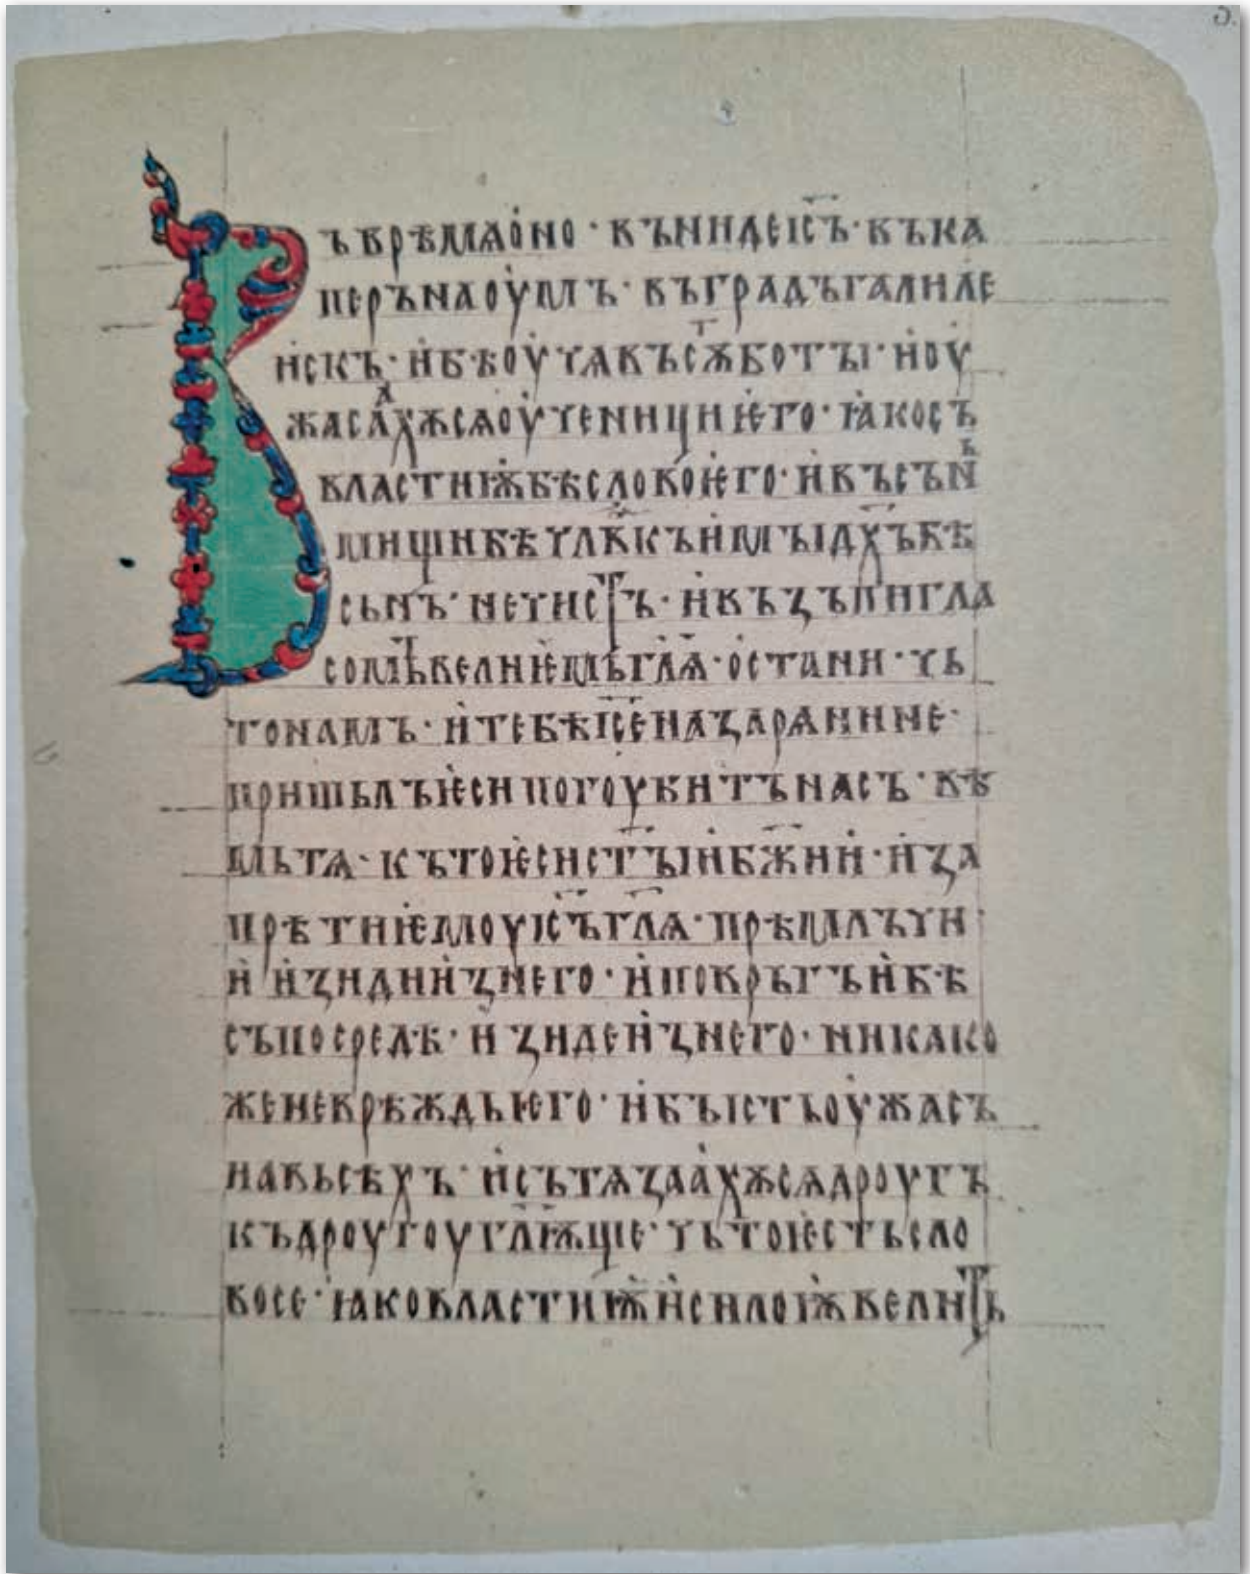 Въ врѣмѧ оно · вънидє і҃съ · въ ка
пєръна оумъ · въ градъ галилє
искъ · и бѣ оучѧ въ сѫботꙑ · и оу
жасаахѫсѧ оучєници ѥго · ꙗко съ
властиѭ бѣ слово ѥго · и въ сънь
мищи бѣ чл҃вкъ имꙑ дх҃ъ бѣ
сьнъ · нєчистъ · и възъпи гла
сомь вєлиѥмь гл҃ѧ · остани · чь
то намъ · и тєбѣ і҃сє назарѧнинє ·
пришьлъ ѥси погоубитъ насъ · вѣ
мь тѧ · къто ѥси ст҃ꙑи б҃жии · и за
прѣти ѥмоу і҃съ гл҃ѧ · прѣмлъчи ·
и изиди из нєго · и повръгъ и бѣ
съ посрєдѣ · изидє из нєго · никако
жє нє врѣждь ѥго · и бꙑстъ оужасъ
на вьсѣхъ · и сътѧзаахѫсѧ дроугъ
къ дроугоу гл҃ѭщє · чьто ѥстъ сло
во сє · ꙗко властиѭ и силоѭ вєлитъ